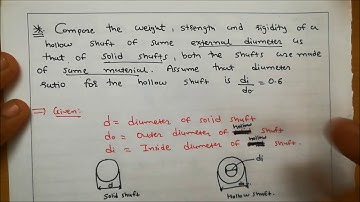 * Compare the weight, strength and rigidity of a
hollow shaft of same external diameter as
that of solid shafts, both the shafts are made
of same material. Assume that diameter
ratio for the hollow shaft is di/do = 0.6
→ Given:
d = diameter of solid shaft
do = Outer diameter of hollow shaft
di = Inside diameter of hollow shaft.
di
d
do
Solid shaft
Hollow shaft.